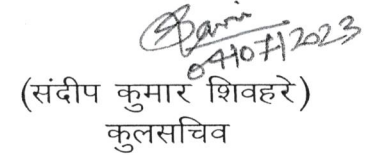 04/07/2023
(संदीप कुमार शिवहरे)
कुलसचिव